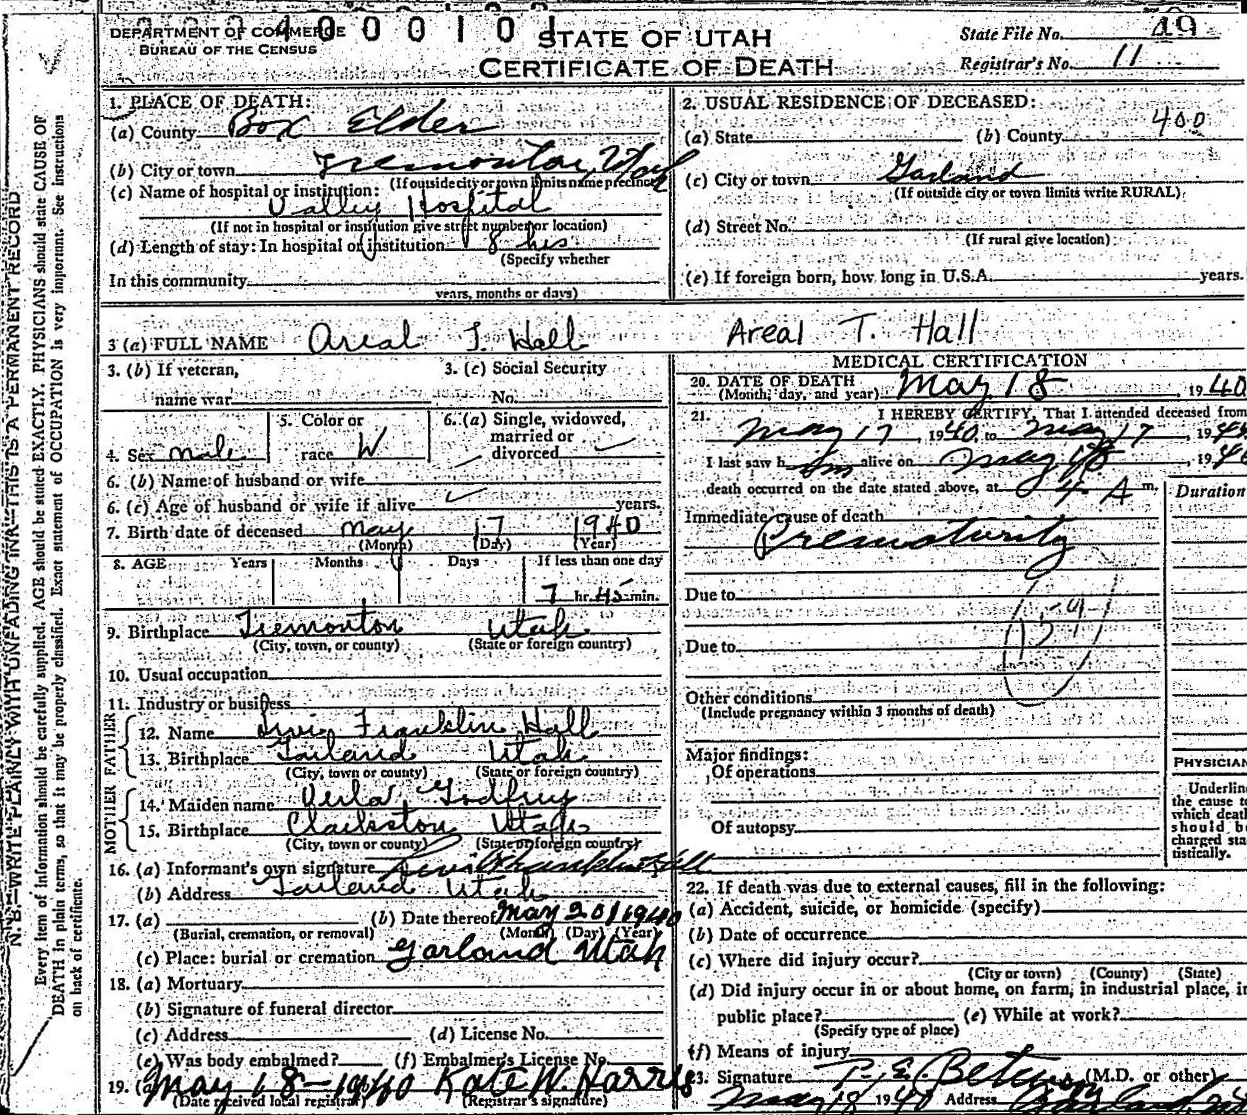 DEPARTMENT OF COMMERCE
BUREAU OF THE CENSUS
STATE OF UTAH
CERTIFICATE OF DEATH
State File No. 49
Registrar's No. 11
1. PLACE OF DEATH:
(a) County Box Elder
(b) City or town Tremonton, Utah
(If outside city or town limits name precinct)
(c) Name of hospital or institution:
Valley Hospital
(If not in hospital or institution give street number or location)
(d) Length of stay: In hospital or institution 8 hrs
(Specify whether
In this community
years, months or days)
2. USUAL RESIDENCE OF DECEASED:
400
(a) State (b) County
(c) City or town Garland
(If outside city or town limits write RURAL)
(d) Street No.
(If rural give location)
(e) If foreign born, how long in U.S.A. years.
3 (a) FULL NAME Areal T. Hall
Areal T. Hall
3. (b) If veteran,
name war
3. (c) Social Security
No.
4. Sex Male
5. Color or
race W
6. (a) Single, widowed,
married or
divorced
6. (b) Name of husband or wife
6. (c) Age of husband or wife if alive years.
7. Birth date of deceased May 17 1940
(Month) (Day) (Year)
8. AGE Years Months Days If less than one day
7 hr. 45 min.
9. Birthplace Tremonton Utah
(City, town, or county) (State or foreign country)
10. Usual occupation
11. Industry or business
FATHER
12. Name Levi Franklin Hall
13. Birthplace Garland Utah
(City, town or county) (State or foreign country)
MOTHER
14. Maiden name Verla Godfrey
15. Birthplace Clarkston Utah
(City, town or county) (State or foreign country)
16. (a) Informant's own signature Levi Franklin Hall
(b) Address Garland Utah
17. (a) (b) Date thereof May 20 1940
(Burial, cremation, or removal) (Month) (Day) (Year)
(c) Place: burial or cremation Garland Utah
18. (a) Mortuary
(b) Signature of funeral director
(c) Address (d) License No.
(e) Was body embalmed? (f) Embalmer's License No.
19. (a) May 18-1940 Kate W. Harris
(Date received local registrar) (Registrar's signature)
MEDICAL CERTIFICATION
20. DATE OF DEATH
(Month, day, and year) May 18, 1940
21. I HEREBY CERTIFY, That I attended deceased from
May 17, 1940, to May 17, 1940
I last saw him alive on May 18, 1940
death occurred on the date stated above, at 4 A m.
Duration
Immediate cause of death
Prematurity
Due to
159
Due to
Other conditions
(Include pregnancy within 3 months of death)
Major findings:
Of operations
Of autopsy
PHYSICIAN
Underline
the cause to
which death
should be
charged sta
tistically.
22. If death was due to external causes, fill in the following:
(a) Accident, suicide, or homicide (specify)
(b) Date of occurrence
(c) Where did injury occur?
(City or town) (County) (State)
(d) Did injury occur in or about home, on farm, in industrial place, in
public place? (e) While at work?
(Specify type of place)
(f) Means of injury
23. Signature (M.D. or other)
May 18 1940 Address Garland
N. B.—WRITE PLAINLY WITH UNFADING INK—THIS IS A PERMANENT RECORD
Every item of information should be carefully supplied. AGE should be stated EXACTLY. PHYSICIANS should state CAUSE OF
DEATH in plain terms, so that it may be properly classified. Exact statement of OCCUPATION is very important. See instructions
on back of certificate.